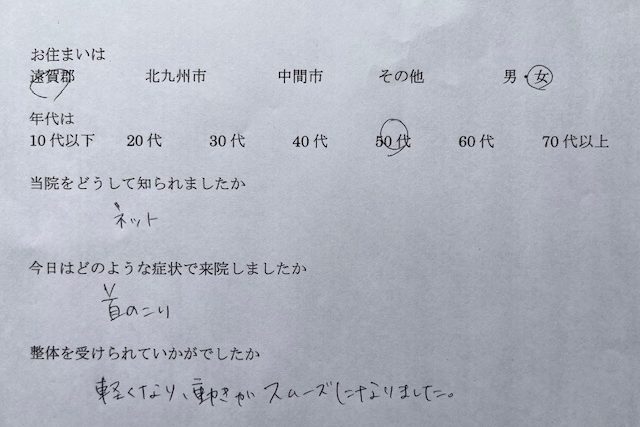 お住まいは
遠賀郡 北九州市 中間市 その他 男・女
年代は
10代以下 20代 30代 40代 50代 60代 70代以上
当院をどうして知られましたか
ネット
今日はどのような症状で来院しましたか
首のこり
整体を受けられていかがでしたか
軽くなり、動きがスムーズになりました。